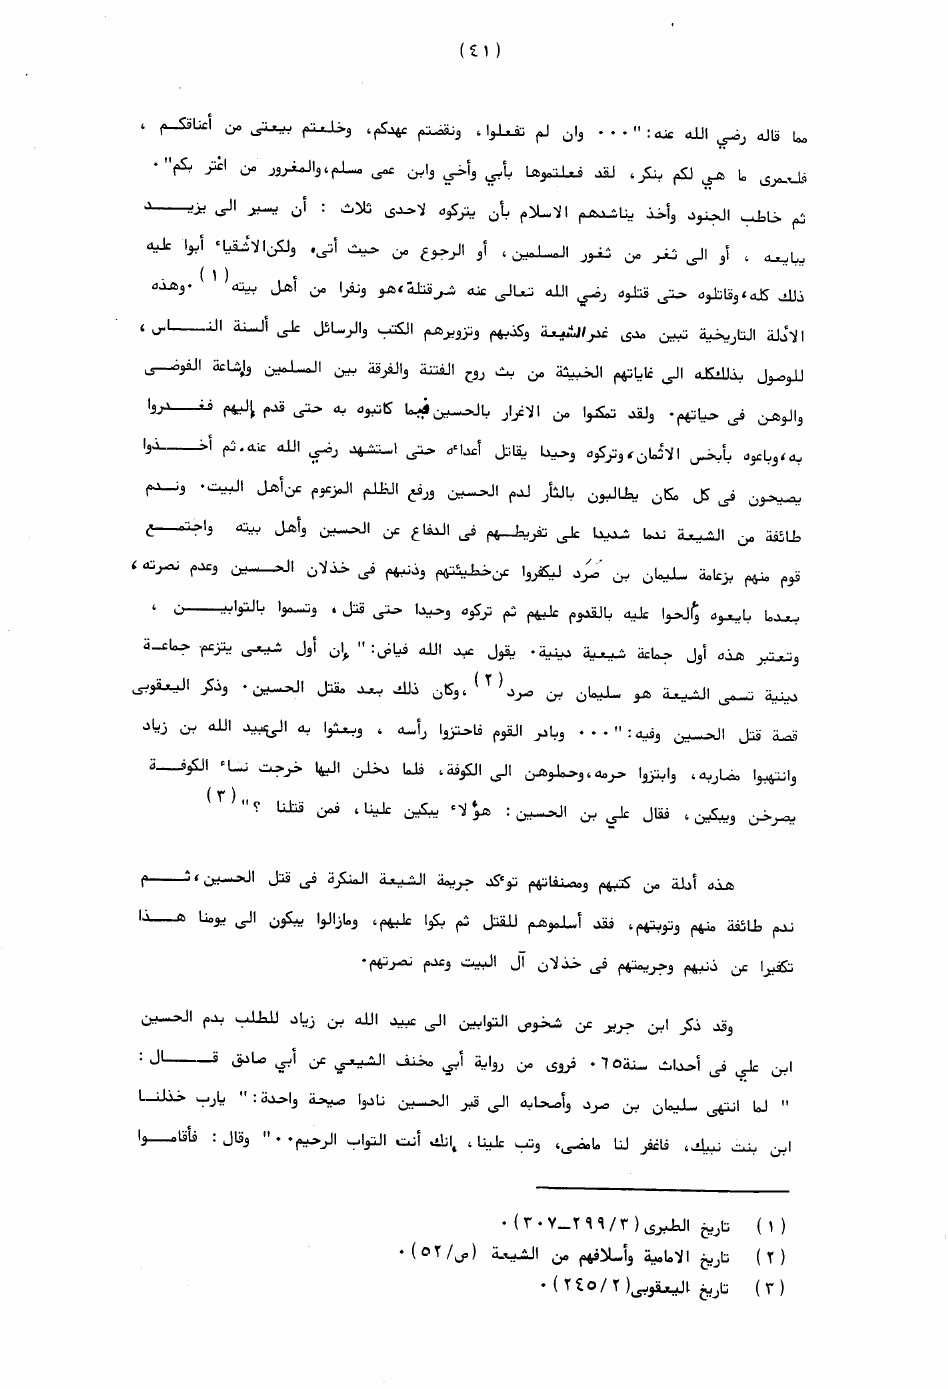 (٤١)
مما قاله رضي الله عنه: "٠٠٠ وان لم تفعلوا، ونقضتم عهدكم، وخلعتم بيعتى من أعناقكم ،
فلعمرى ما هي لكم بنكر، لقد فعلتموها بأبي وأخي وابن عمى مسلم،والمغرور من اغتر بكم"٠
ثم خاطب الجنود وأخذ يناشدهم الاسلام بأن يتركوه لاحدى ثلاث : أن يسير الى يزيد
يبايعه ، أو الى ثغر من ثغور المسلمين، أو الرجوع من حيث أتى، ولكن الأشقياء أبوا عليه
ذلك كله،وقاتلوه حتى قتلوه رضي الله تعالى عنه شر قتلة،هو ونفرا من أهل بيته(١)٠وهذه
الأدلة التاريخية تبين مدى غدر الشيعة وكذبهم وتزويرهم الكتب والرسائل على ألسنة الناس،
للوصول بذلك كله الى غاياتهم الخبيثة من بث روح الفتنة والفرقة بين المسلمين وإشاعة الفوضى
والوهن فى حياتهم٠ ولقد تمكنوا من الاغرار بالحسين فيما كاتبوه به حتى قدم إليهم فغدروا
به،وباعوه بأبخس الأثمان،وتركوه وحيدا يقاتل أعداءه حتى استشهد رضي الله عنه.ثم أخذوا
يصيحون فى كل مكان يطالبون بالثأر لدم الحسين ورفع الظلم المزعوم عن أهل البيت٠ وندم
طائفة من الشيعة ندما شديدا على تفريطهم فى الدفاع عن الحسين وأهل بيته واجتمع
قوم منهم بزعامة سليمان بن صُرَد ليكفروا عن خطيئتهم وذنبهم فى خذلان الحسين وعدم نصرته،
بعدما بايعوه وألحوا عليه بالقدوم عليهم ثم تركوه وحيدا حتى قتل، وتسموا بالتوابين ،
وتعتبر هذه أول جماعة شيعية دينية٠ يقول عبد الله فياض: " إن أول شيعى يتزعم جماعة
دينية تسمى الشيعة هو سليمان بن صرد(٢)،وكان ذلك بعد مقتل الحسين٠ وذكر اليعقوبى
قصة قتل الحسين وفيه: "٠٠٠ وبادر القوم فاحتزوا رأسه ، وبعثوا به الى عبيد الله بن زياد
وانتهبوا مضاربه، وابتزوا حرمه،وحملوهن الى الكوفة، فلما دخلن اليها خرجت نساء الكوفة
يصرخن ويبكين ، فقال علي بن الحسين: هؤلاء يبكين علينا، فمن قتلنا ؟"(٣)
هذه أدلة من كتبهم ومصنفاتهم تؤكد جريمة الشيعة المنكرة فى قتل الحسين،ثم
ندم طائفة منهم وتوبتهم، فقد أسلموهم للقتل ثم بكوا عليهم، ومازالوا يبكون الى يومنا هذا
تكفيرا عن ذنبهم وجريمتهم فى خذلان آل البيت وعدم نصرتهم٠
وقد ذكر ابن جرير عن شخوص التوابين الى عبيد الله بن زياد للطلب بدم الحسين
ابن علي فى أحداث سنة٦٥٠ فروى من رواية أبي مخنف الشيعي عن أبي صادق قال:
" لما انتهى سليمان بن صرد وأصحابه الى قبر الحسين نادوا صيحة واحدة: " يارب خذلنا
ابن بنت نبيك، فاغفر لنا مامضى، وتب علينا، إنك أنت التواب الرحيم٠٠" وقال: فأقاموا
(١) تاريخ الطبرى(٢٩٩/٣ـ٣٠٧)٠
(٢) تاريخ الامامية وأسلافهم من الشيعة (ص/٥٢)٠
(٣) تاريخ اليعقوبى(٢٤٥/٢)٠